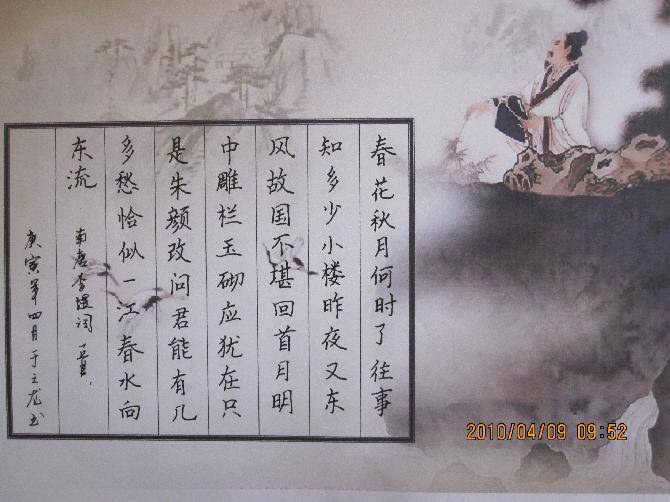 春花秋月何时了往事
知多少小楼昨夜又东
风故国不堪回首月明
中雕栏玉砌应犹在只
是朱颜改问君能有几
多愁恰似一江春水向
东流 南唐李煜词一首
庚寅年四月于龙书
2010/04/09 09:52